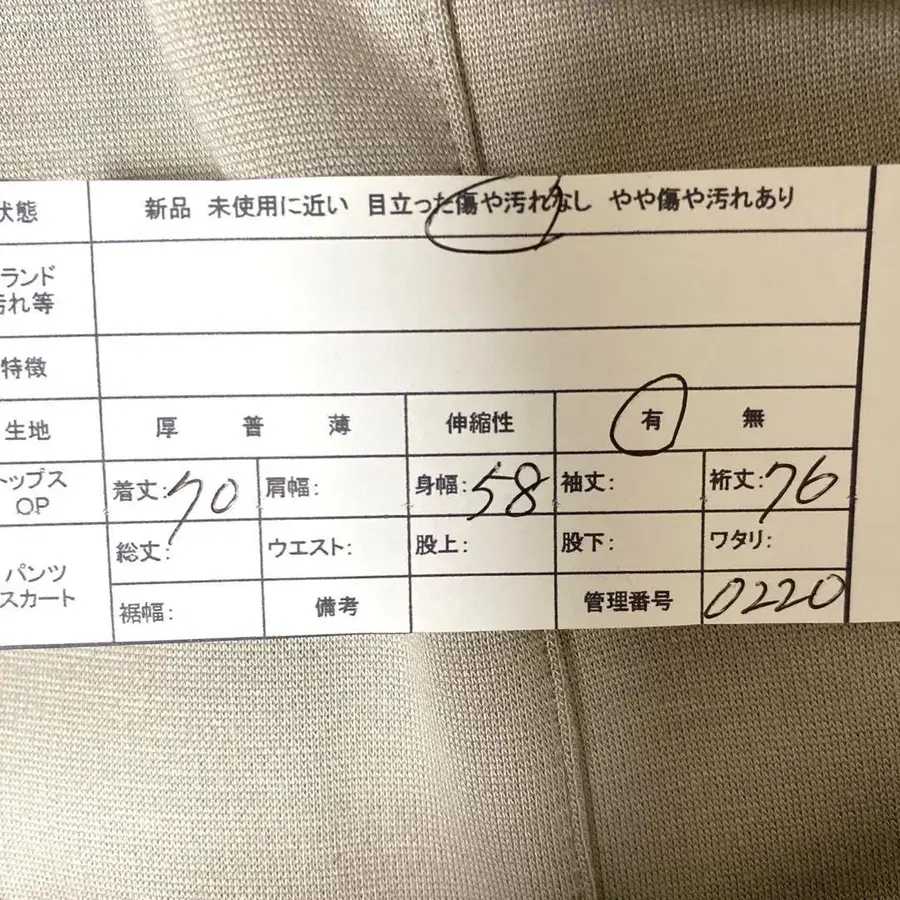 状態 新品 未使用に近い 目立った傷や汚れなし やや傷や汚れあり
ランド
汚れ等
特徴
生地 厚 普 薄 伸縮性 有 無
トップス
OP
着丈:70 肩幅: 身幅:58 袖丈: 裄丈:76
パンツ
スカート
総丈: ウエスト: 股上: 股下: ワタリ:
裾幅: 備考 管理番号 0220